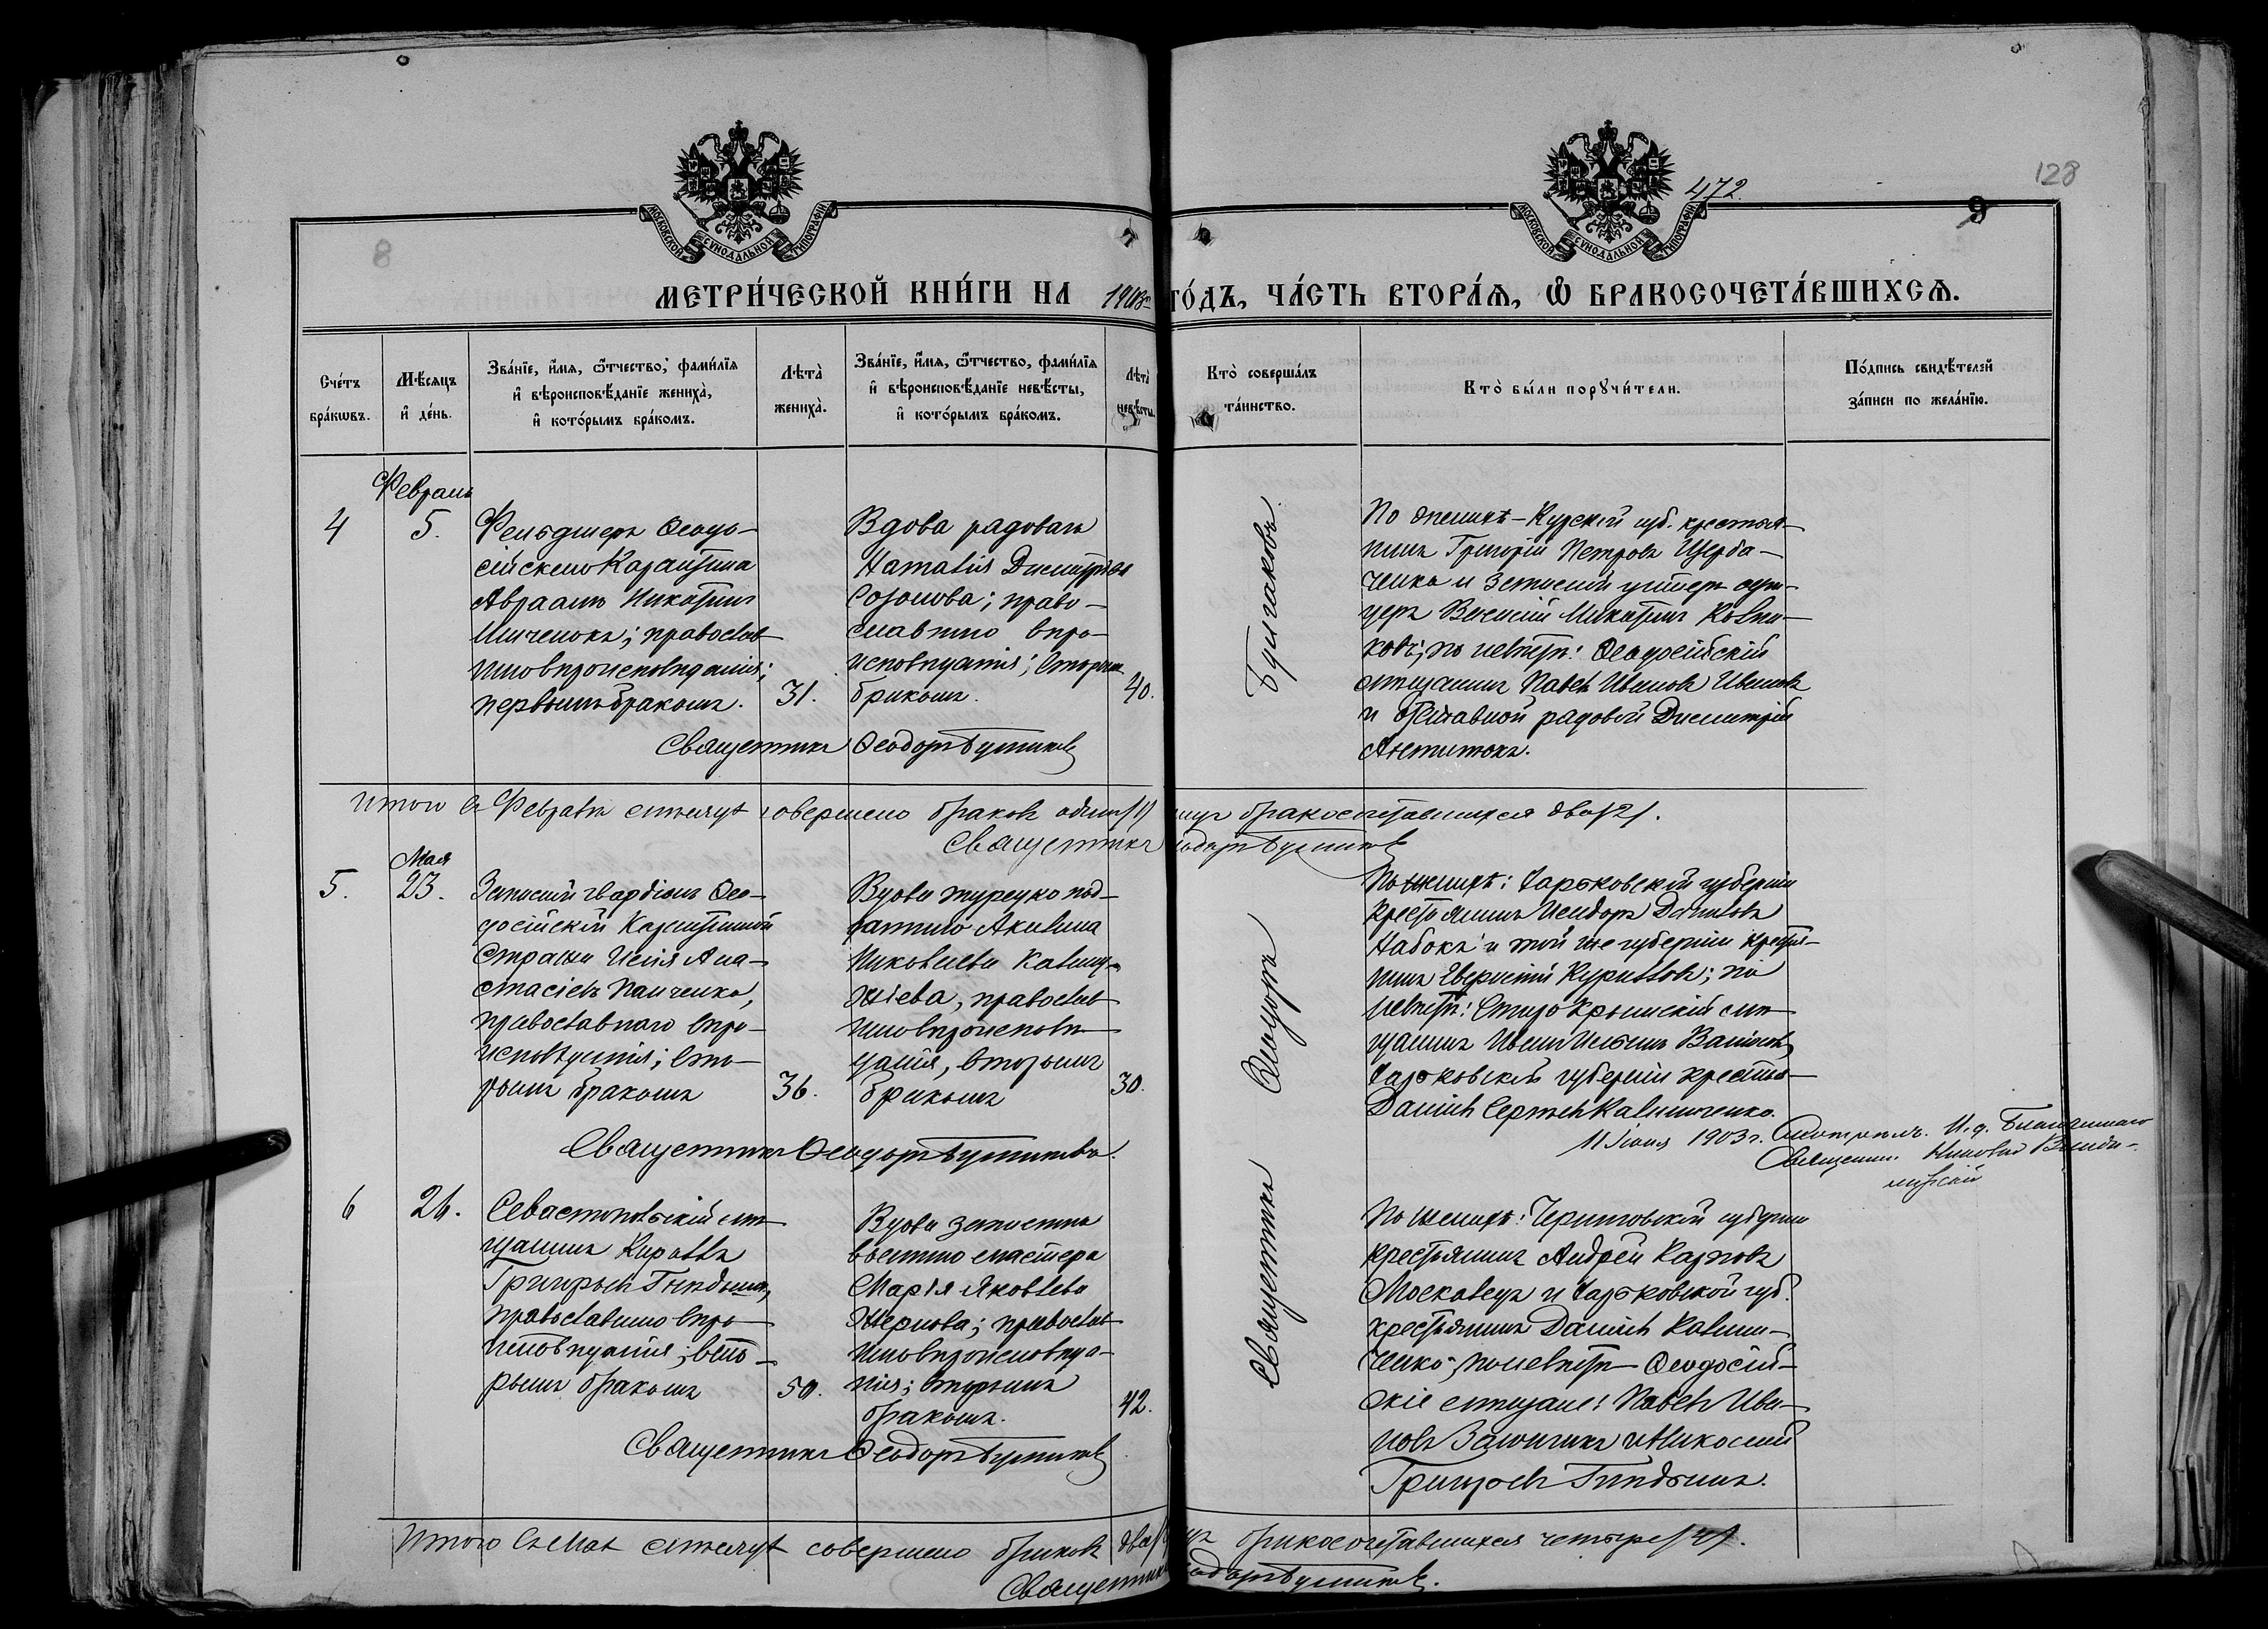 472.
128
8
9
МОСКОВСКОЙ СѴНОДАЛЬНОЙ ТИПОГРАФІИ
МОСКОВСКОЙ СѴНОДАЛЬНОЙ ТИПОГРАФІИ
МЕТРИ́ЧЕСКОЙ КНИ́ГИ НА 1903 ГО́ДЪ, ЧА́СТЬ ВТОРА́Ѧ, Ѡ҆ БРАКОСОЧЕТА́ВШИХСѦ.
Сче́тъ
бра́кѡвъ.
Мѣ́сѧцъ
и҆ де́нь.
Зва́нїе, и҆́мѧ, ѻ҆́тчество, фами́лїѧ
и҆ вѣроисповѣ́данїе жениха̀,
и҆ кото́рымъ бра́комъ.
Лѣта̀
жениха̀.
Зва́нїе, и҆́мѧ, ѻ҆́тчество, фами́лїѧ
и҆ вѣроисповѣ́данїе невѣ́сты,
и҆ кото́рымъ бра́комъ.
Лѣта̀
невѣ́сты.
Кто̀ соверша́лъ
та́инство.
Кто̀ бы́ли порꙋчи́тели.
По́дпись свидѣ́телей
за́писи по жела́нїю.
Февраль
4
5.
Фельдшеръ Ѳеодо-
сійскаго Карантина
Авраамъ Никитинъ
православ-
наго вѣроисповѣданія;
первымъ бракомъ.
31.
Вдова рядоваго
Наталія Димитріева
Созонова; право-
славнаго вѣро-
исповѣданія; вторым
бракомъ.
40.
По женихѣ - Курской губ. крестья-
нинъ Григорій Петровъ Щерба-
ченко и запасной унтеръ офи-
церъ Никитинъ
по невѣстѣ: Ѳеодосійскій
мѣщанинъ Павелъ Ивановъ Ивановъ
и отставной рядовой Димитрій
Священникъ Ѳеодоръ Булгаковъ
Итого въ Февралѣ мѣсяцѣ совершено браковъ одинъ /1/ бракосочетавшихся два /2/.
Священникъ Ѳеодоръ Булгаковъ
Мая
5.
23.
Запасный гвардіонъ Ѳео-
досійской Карантинной
Стражи Илія Ана-
стасіевъ Панченко,
православнаго вѣро-
исповѣданія; вто-
рымъ бракомъ
36.
Вдова турецко под-
даннаго Акилина
Яковлева
православ-
наго вѣроисповѣ-
данія, вторымъ
бракомъ
30.
По женихѣ: Харьковской губерніи
крестьянинъ Исидоръ Даниловъ
Набока и той же губерніи крестья-
нинъ Кирилловъ; по
невѣстѣ: Старо Крымскій мѣ-
щанинъ Ильинъ
Харьковской губерніи крестья-
Даніилъ Сергѣевъ Калиниченко.
Священникъ Ѳеодоръ Булгаковъ.
11 Іюня 1903 г. Смотрѣлъ. И. д. Благочиннаго
Священникъ Влади-
мірскій
6
26.
Севастопольскій мѣ-
щанинъ Кириллъ
Григорьевъ
православнаго вѣро-
исповѣданія; вто-
рымъ бракомъ
50.
Вдова запаснаго
мастера
Марія Яковлева
православ-
наго вѣроисповѣда-
нія; вторымъ
бракомъ.
42.
По женихѣ: Черниговской губерніи
крестьянинъ Андрей Карповъ
Москалецъ и Харьковской губ.
крестьянинъ Даніилъ Калини-
ченко; по невѣстѣ - Ѳеодосій-
скіе мѣщане: Павелъ Ива-
новъ и Николай
Григорьевъ
Священникъ Ѳеодоръ Булгаковъ
Священникъ Ѳеодоръ Булгаковъ.
Итого въ Маѣ мѣсяцѣ совершено браковъ два бракосочетавшихся четыре /4/.
Священникъ Ѳеодоръ Булгаковъ.